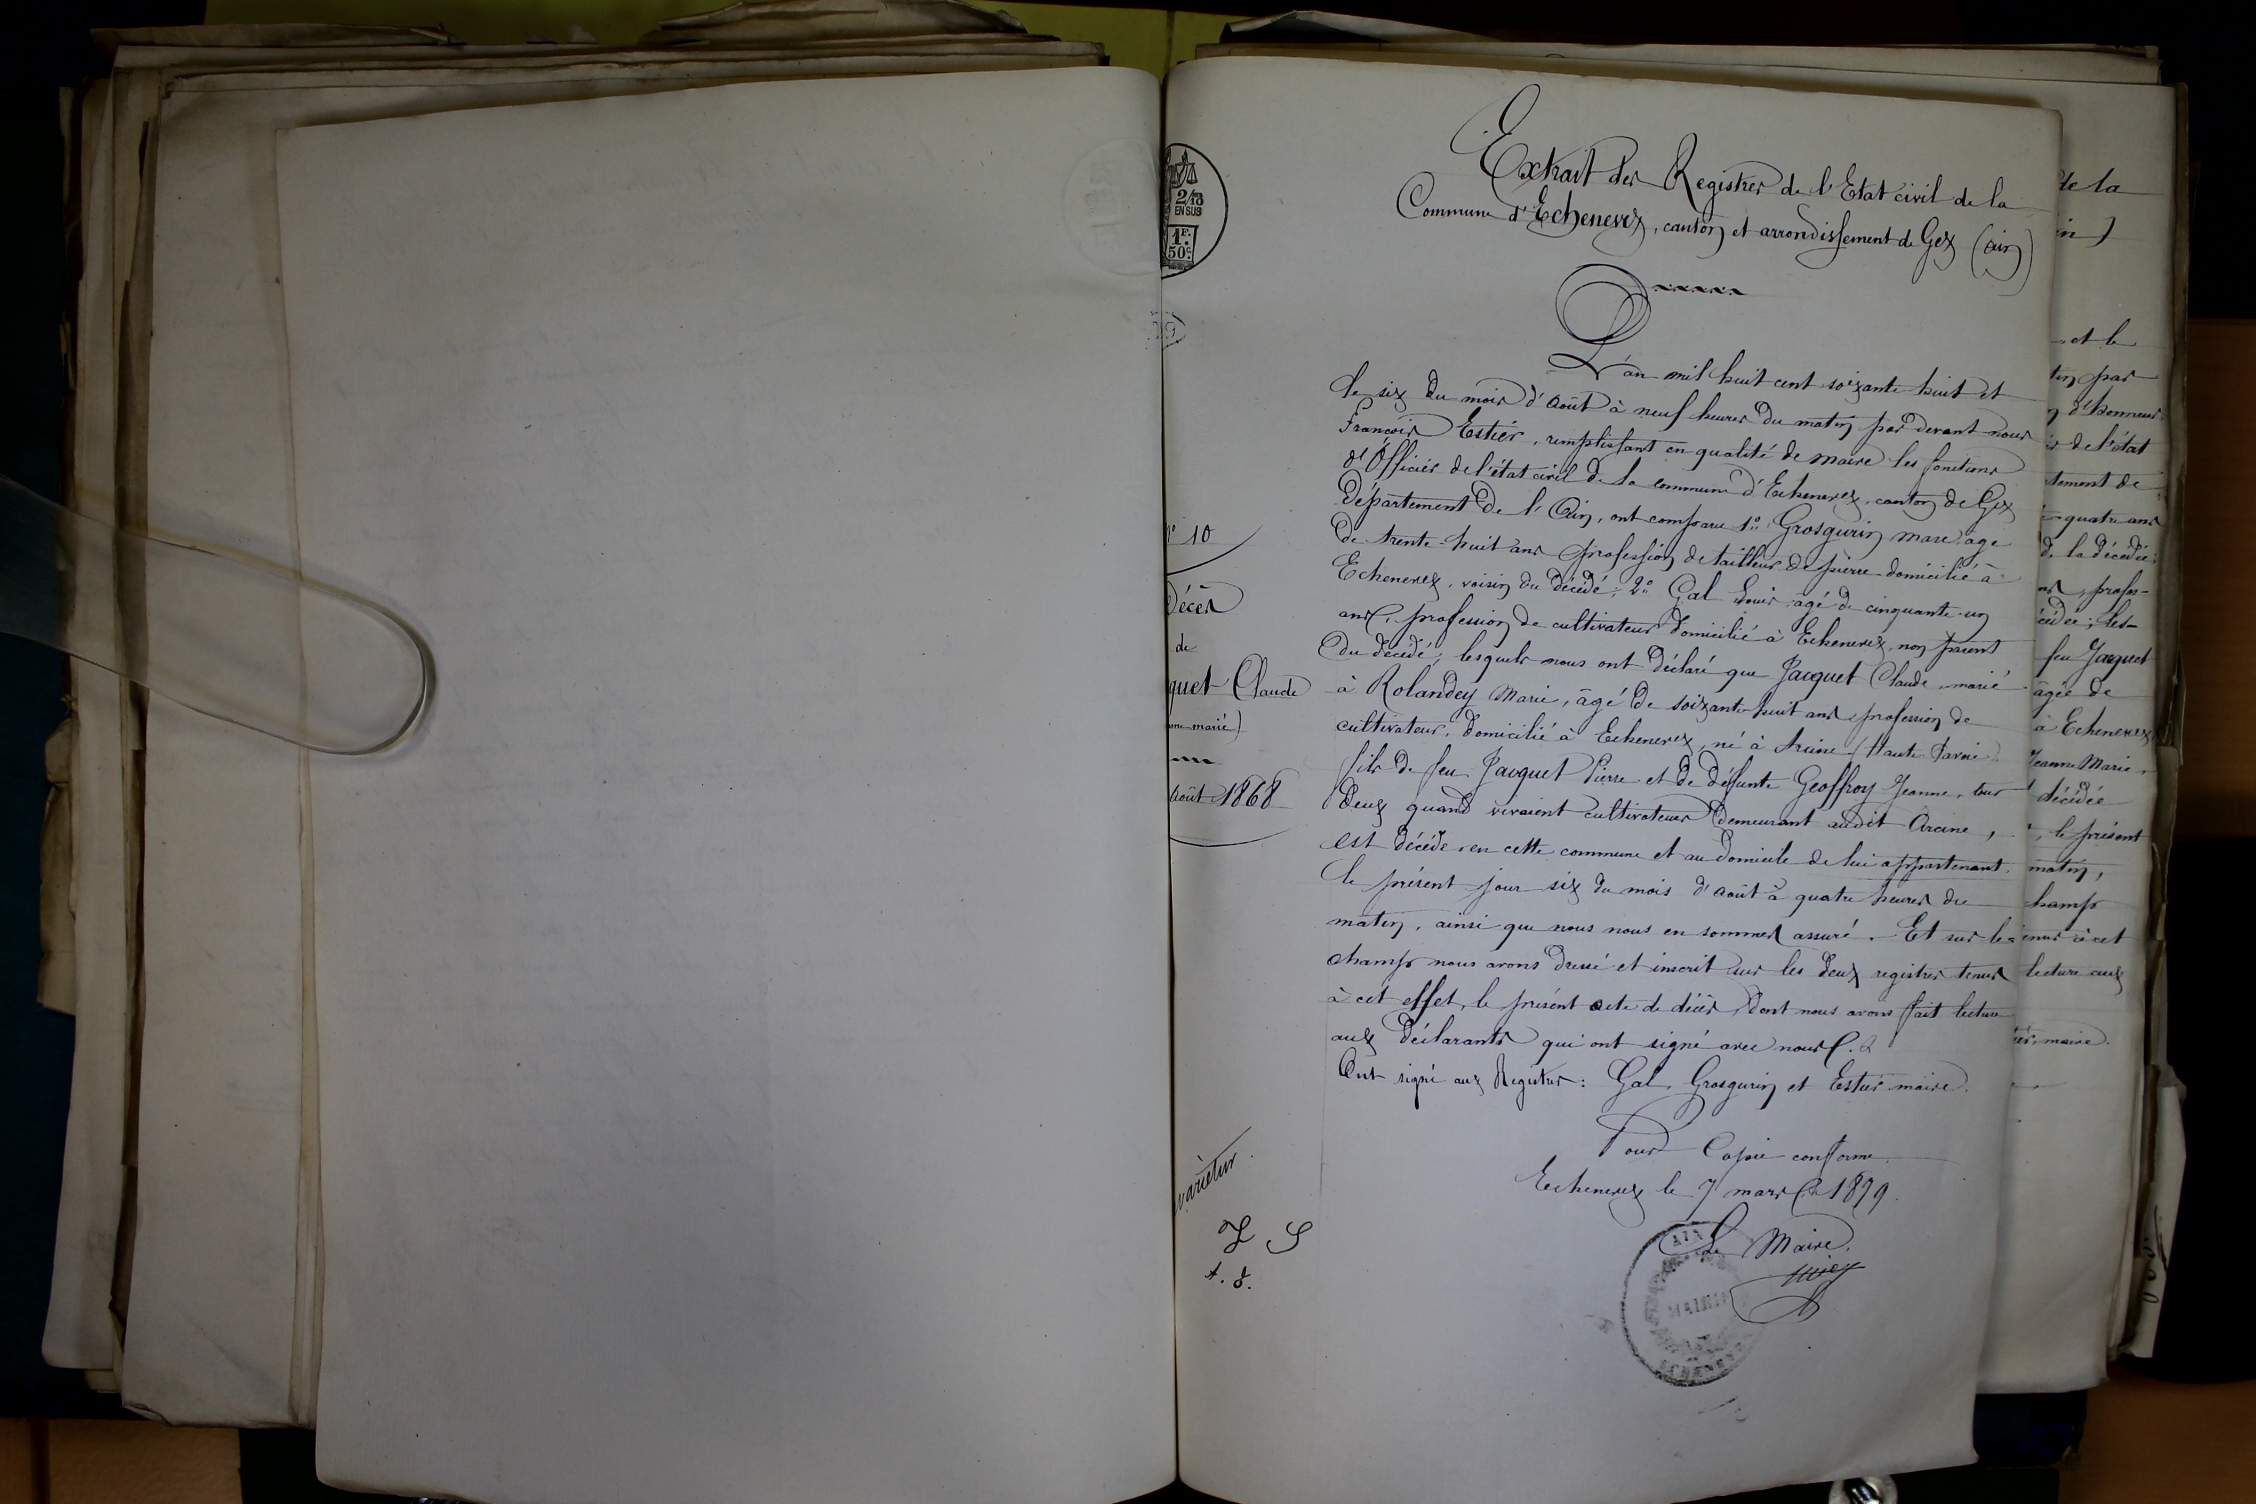 2/10
EN SUS
1F.
50c.
Extrait des Registres de l'Etat civil de la
Commune d'Echenevex, canton et arrondissement de Gex (Ain)
L'an mil huit cent soixante huit et
le six du mois d'Août à neuf heures du matin par devant nous
François Estier, remplissant en qualité de maire les fonctions
d'Officier de l'état civil de la commune d'Echenevex, canton de Gex
Département de l'Ain, ont comparu 1° Grosgurin marc agé
de trente-huit ans profession de tailleur de pierre domicilié à
Echenevex, voisin du décédé; 2° Gal Louis agé de cinquante-un
ans, profession de cultivateur domicilié à Echenevex, non parent
du décédé; lesquels nous ont déclaré que Jacquet Claude, marié
à Rolandey Marie, âgé de soixante-huit ans profession de
cultivateur, domicilié à Echenevex, né à Arcine (Haute Savoie)
fils de feu Jacquet Pierre et de défunte Geoffroy Jeanne, tous
deux quand vivaient cultivateurs demeurant audit Arcine,
est décédé en cette commune et au domicile de lui appartenant,
le présent jour six du mois d'août à quatre heures du
matin, ainsi que nous nous en sommes assuré. Et sur le-
champ nous avons dressé et inscrit sur les deux registres tenus
à cet effet, le présent acte de décès, dont nous avons fait lecture
aux déclarants qui ont signé avec nous.
Ont signé aux Registres: Gal, Grosgurin et Estier maire.
Pour Copie conforme
Echenevex le 7 mars 1879.
Le Maire,
AIN
MAIRIE
N° 10
Décès
de
quet Claude
me marié)
Août 1868
varietur.
de la
in)
et le
tin par
n d'honneur
er de l'état
tement de
quatre ans
de la décédée;
ans, profes-
cédée; les-
feu Jacquet
âgée de
à Echenevex
Jeanne Marie,
décédée
, le présent
matin,
champ
tenus à cet
lecture aux
ier, maire.